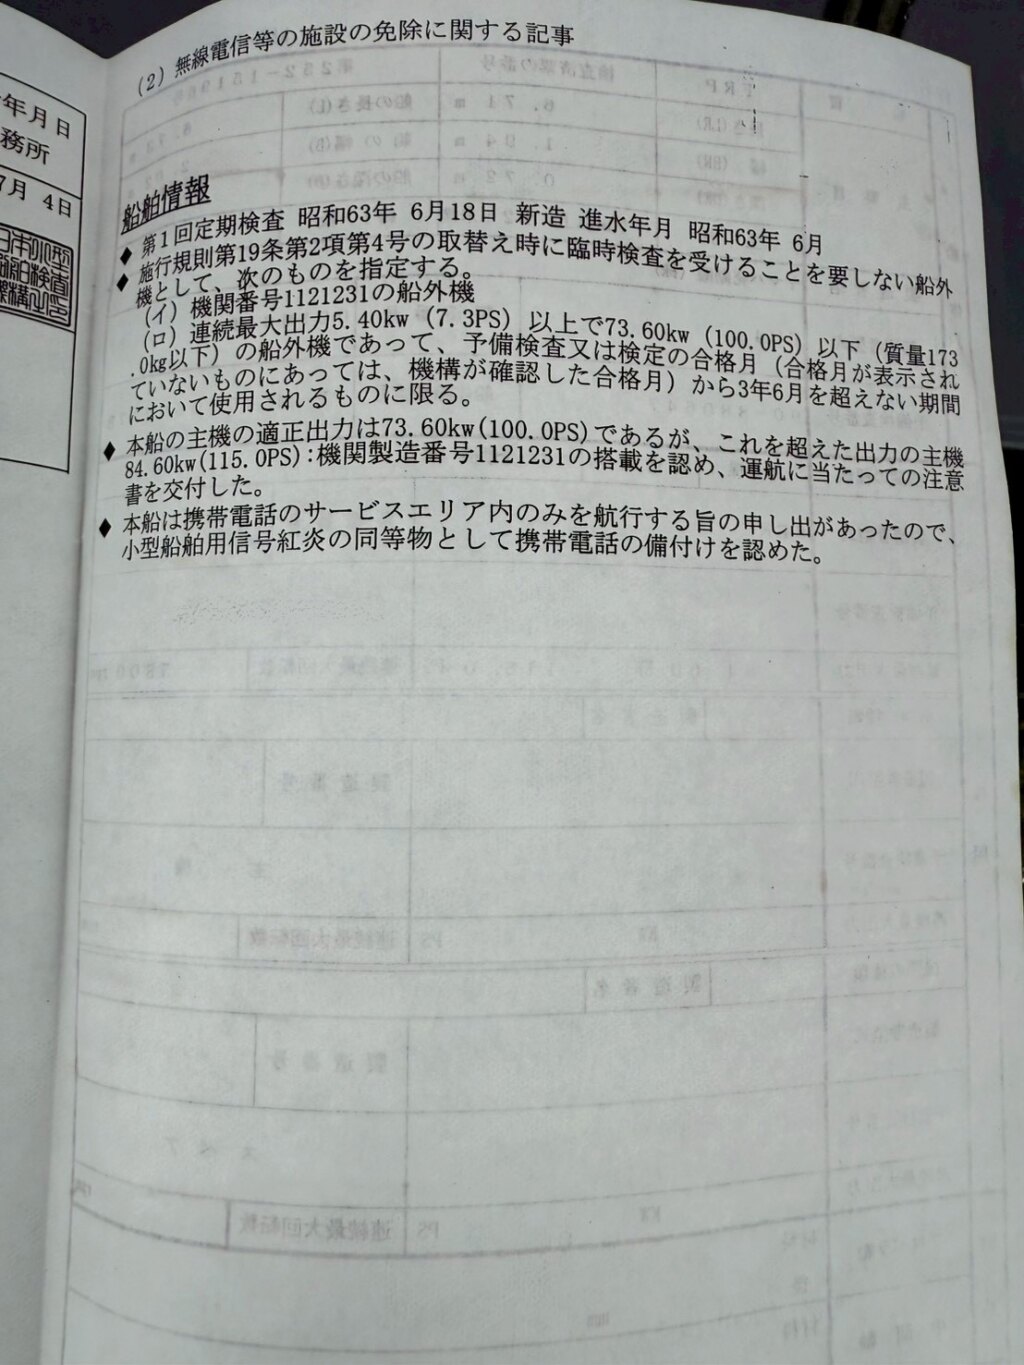 年月日
務所
7月 4日
(2) 無線電信等の施設の免除に関する記事
船舶情報
◆ 第1回定期検査 昭和63年 6月18日 新造 進水年月 昭和63年 6月
◆ 施行規則第19条第2項第4号の取替え時に臨時検査を受けることを要しない船外
機として、次のものを指定する。
(イ) 機関番号1121231の船外機
(ロ) 連続最大出力5.40kw (7.3PS) 以上で73.60kw (100.0PS) 以下 (質量173
.0kg以下) の船外機であって、予備検査又は検定の合格月 (合格月が表示され
ていないものにあっては、機構が確認した合格月) から3年6月を超えない期間
において使用されるものに限る。
◆ 本船の主機の適正出力は73.60kw(100.0PS)であるが、これを超えた出力の主機
84.60kw(115.0PS):機関製造番号1121231の搭載を認め、運航に当たっての注意
書を交付した。
◆ 本船は携帯電話のサービスエリア内のみを航行する旨の申し出があったので、
小型船舶用信号紅炎の同等物として携帯電話の備付けを認めた。